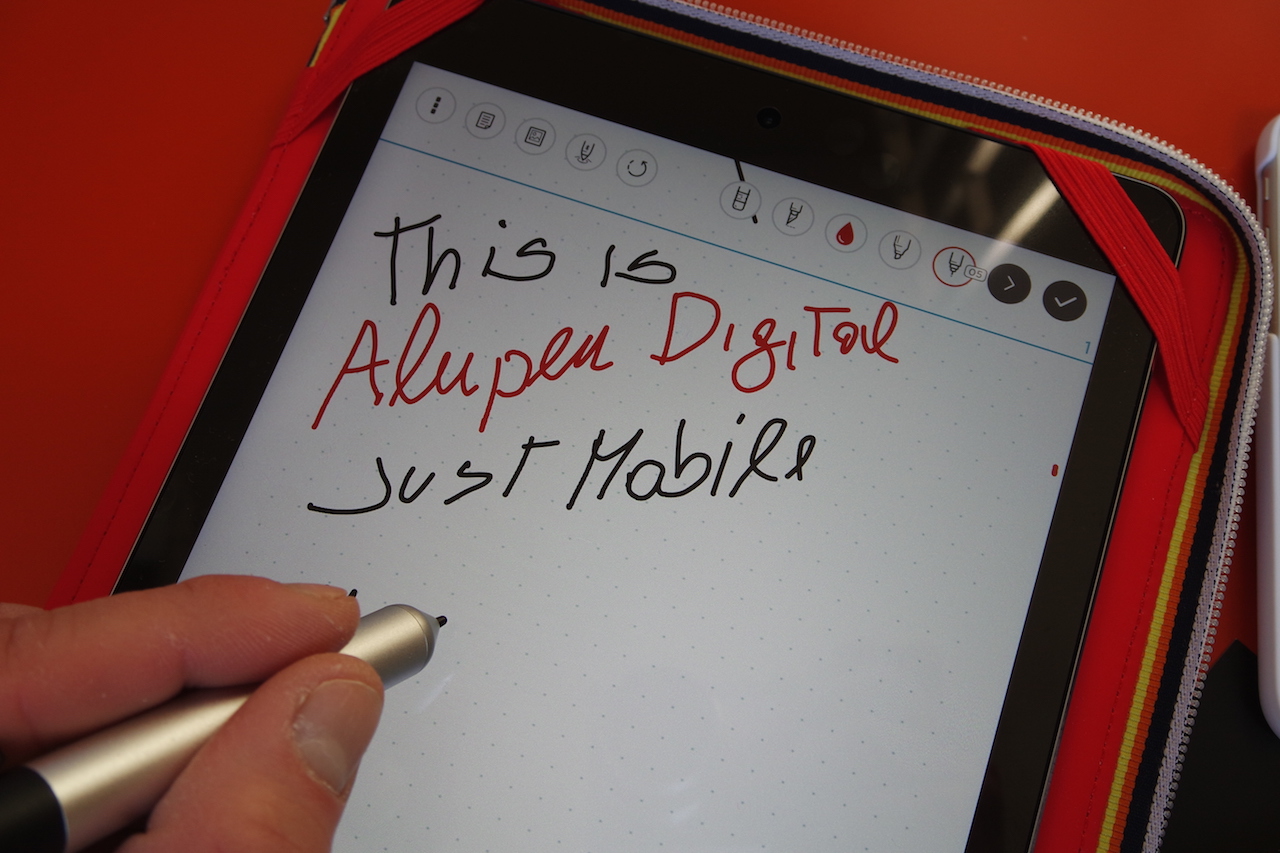 05
1
This is
Alupen Digital
Just Mobile